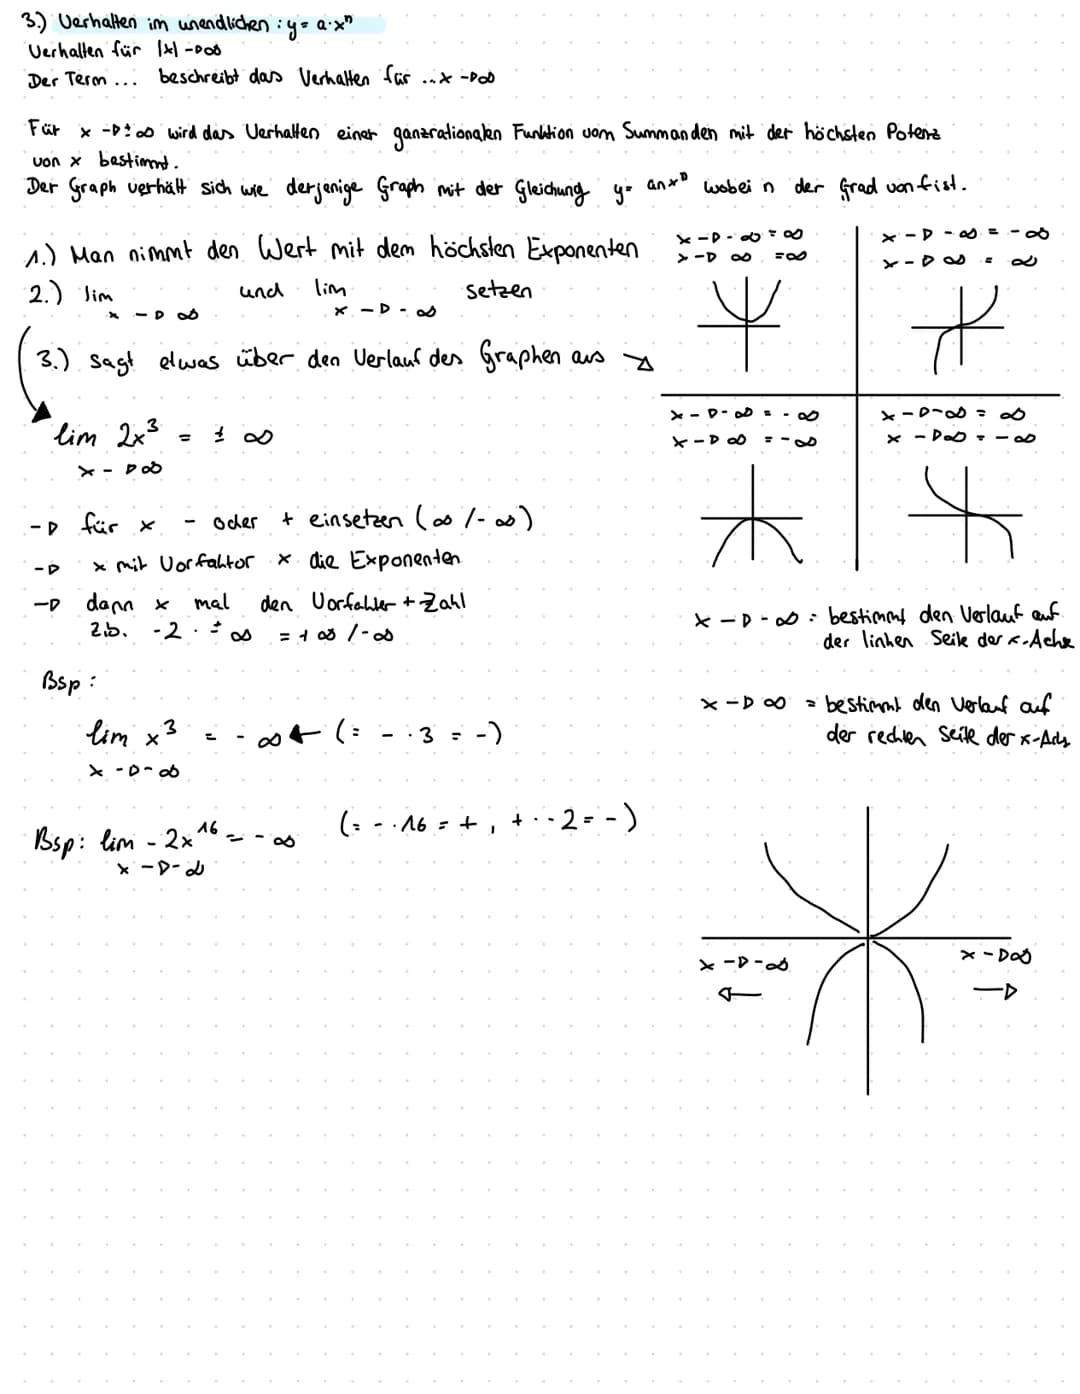 3.) Verhalten im unendlichen : y = a·xⁿ
Verhalten für |x| → ∞
Der Term ... beschreibt das Verhalten für ... x → ∞
Für x → ± ∞ wird das Verhalten einer ganzrationalen Funktion vom Summanden mit der höchsten Potenz
von x bestimmt.
Der Graph verhält sich wie derjenige Graph mit der Gleichung y = anxⁿ wobei n der Grad von f ist.
1.) Man nimmt den Wert mit dem höchsten Exponenten
2.) lim und lim setzen
x → ∞ x → - ∞
3.) sagt etwas über den Verlauf des Graphen aus →
x → - ∞ = ∞
x → ∞ = ∞
x → - ∞ = - ∞
x → ∞ = ∞
x → - ∞ = - ∞
x → ∞ = - ∞
x → - ∞ = ∞
x → ∞ = - ∞
lim 2x³ = ± ∞
x → ∞
→ für x - oder + einsetzen (∞ / - ∞)
→ x mit Vorfaktor x die Exponenten
→ dann x mal den Vorfaktor + Zahl
z.b. -2 · ± ∞ = + ∞ / - ∞
x → - ∞ = bestimmt den Verlauf auf
der linken Seite der x-Achse
x → ∞ = bestimmt den Verlauf auf
der rechten Seite der x-Achs
Bsp :
lim x³ = - ∞ ← (= - · 3 = -)
x → - ∞
Bsp: lim - 2x¹⁶ = - ∞ (= - · 16 = + , + · - 2 = - )
x → - ∞
x → - ∞
←
x → ∞
→